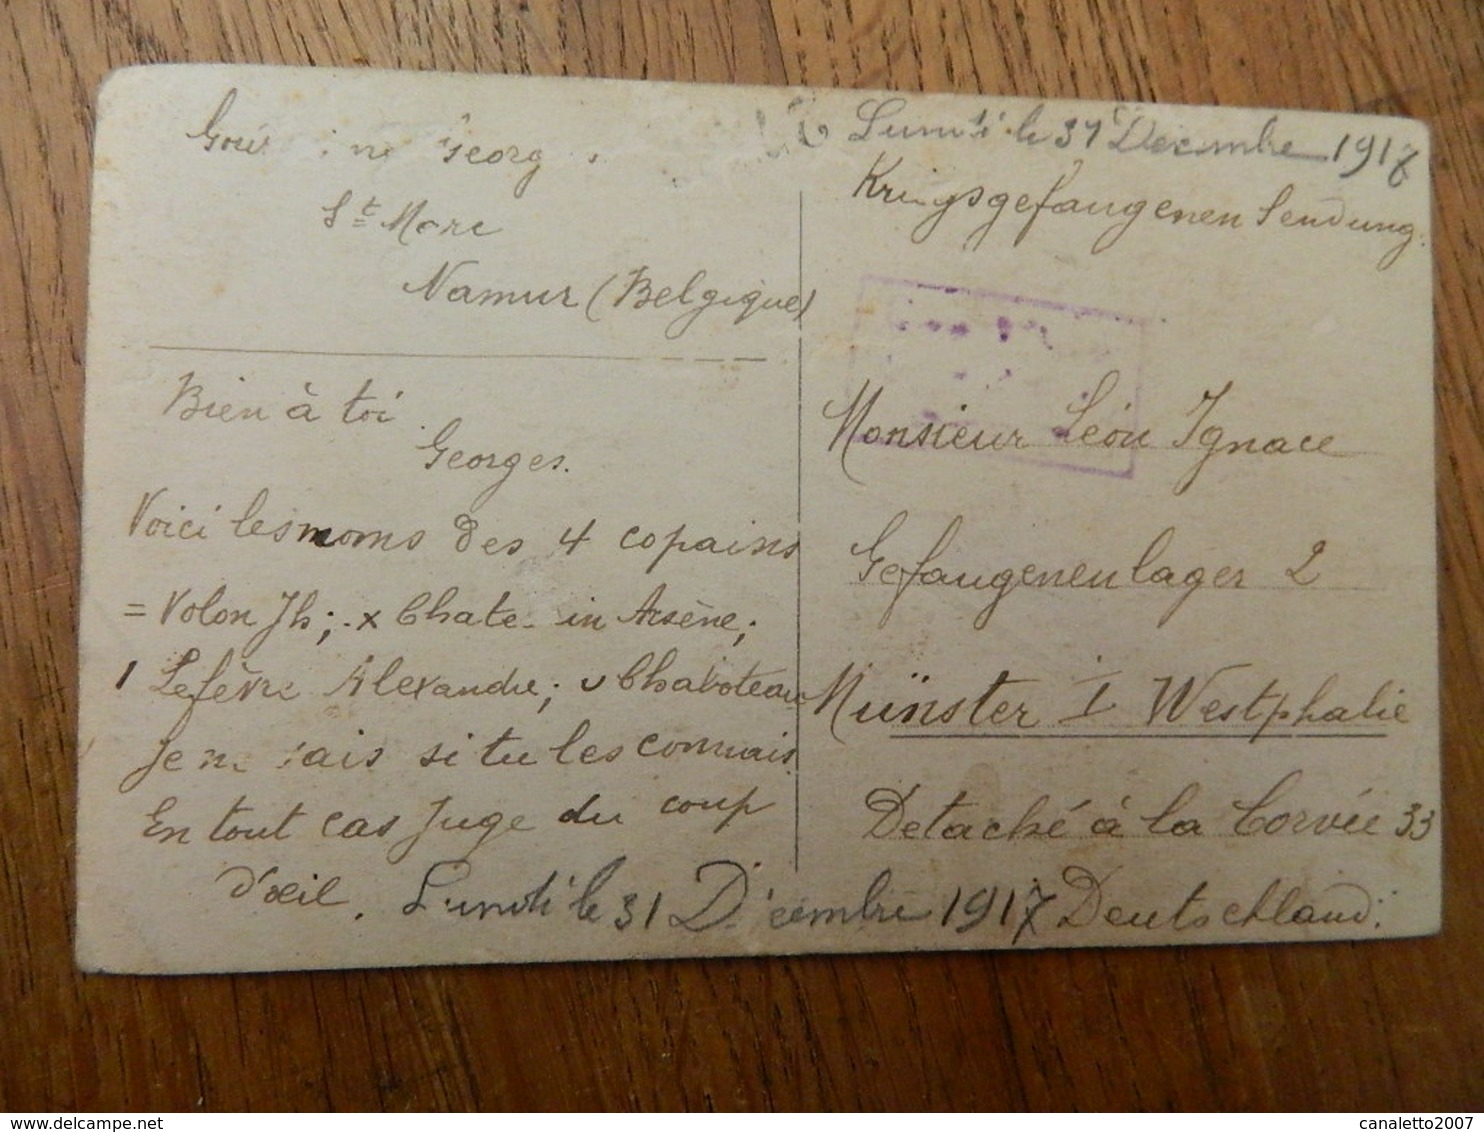 Georg
St Marc
Namur (Belgique)
Bien à toi
Georges.
Voici les noms des 4 copains
= Volon Jh; x in Arsène;
Lefèvre Alexandre; u Chaboteau
Je sais si tu les connais.
En tout cas juge du coup
d'œil. Lundi le 31 Décembre 1917
Lundi le 31 Décembre 1917
Kriegsgefangenen Sendung.
Monsieur Léon Ignace
Gefangenenlager 2
Münster I Westphalie
Detaché à la Corvée 33
Deutschland.
canaletto2007